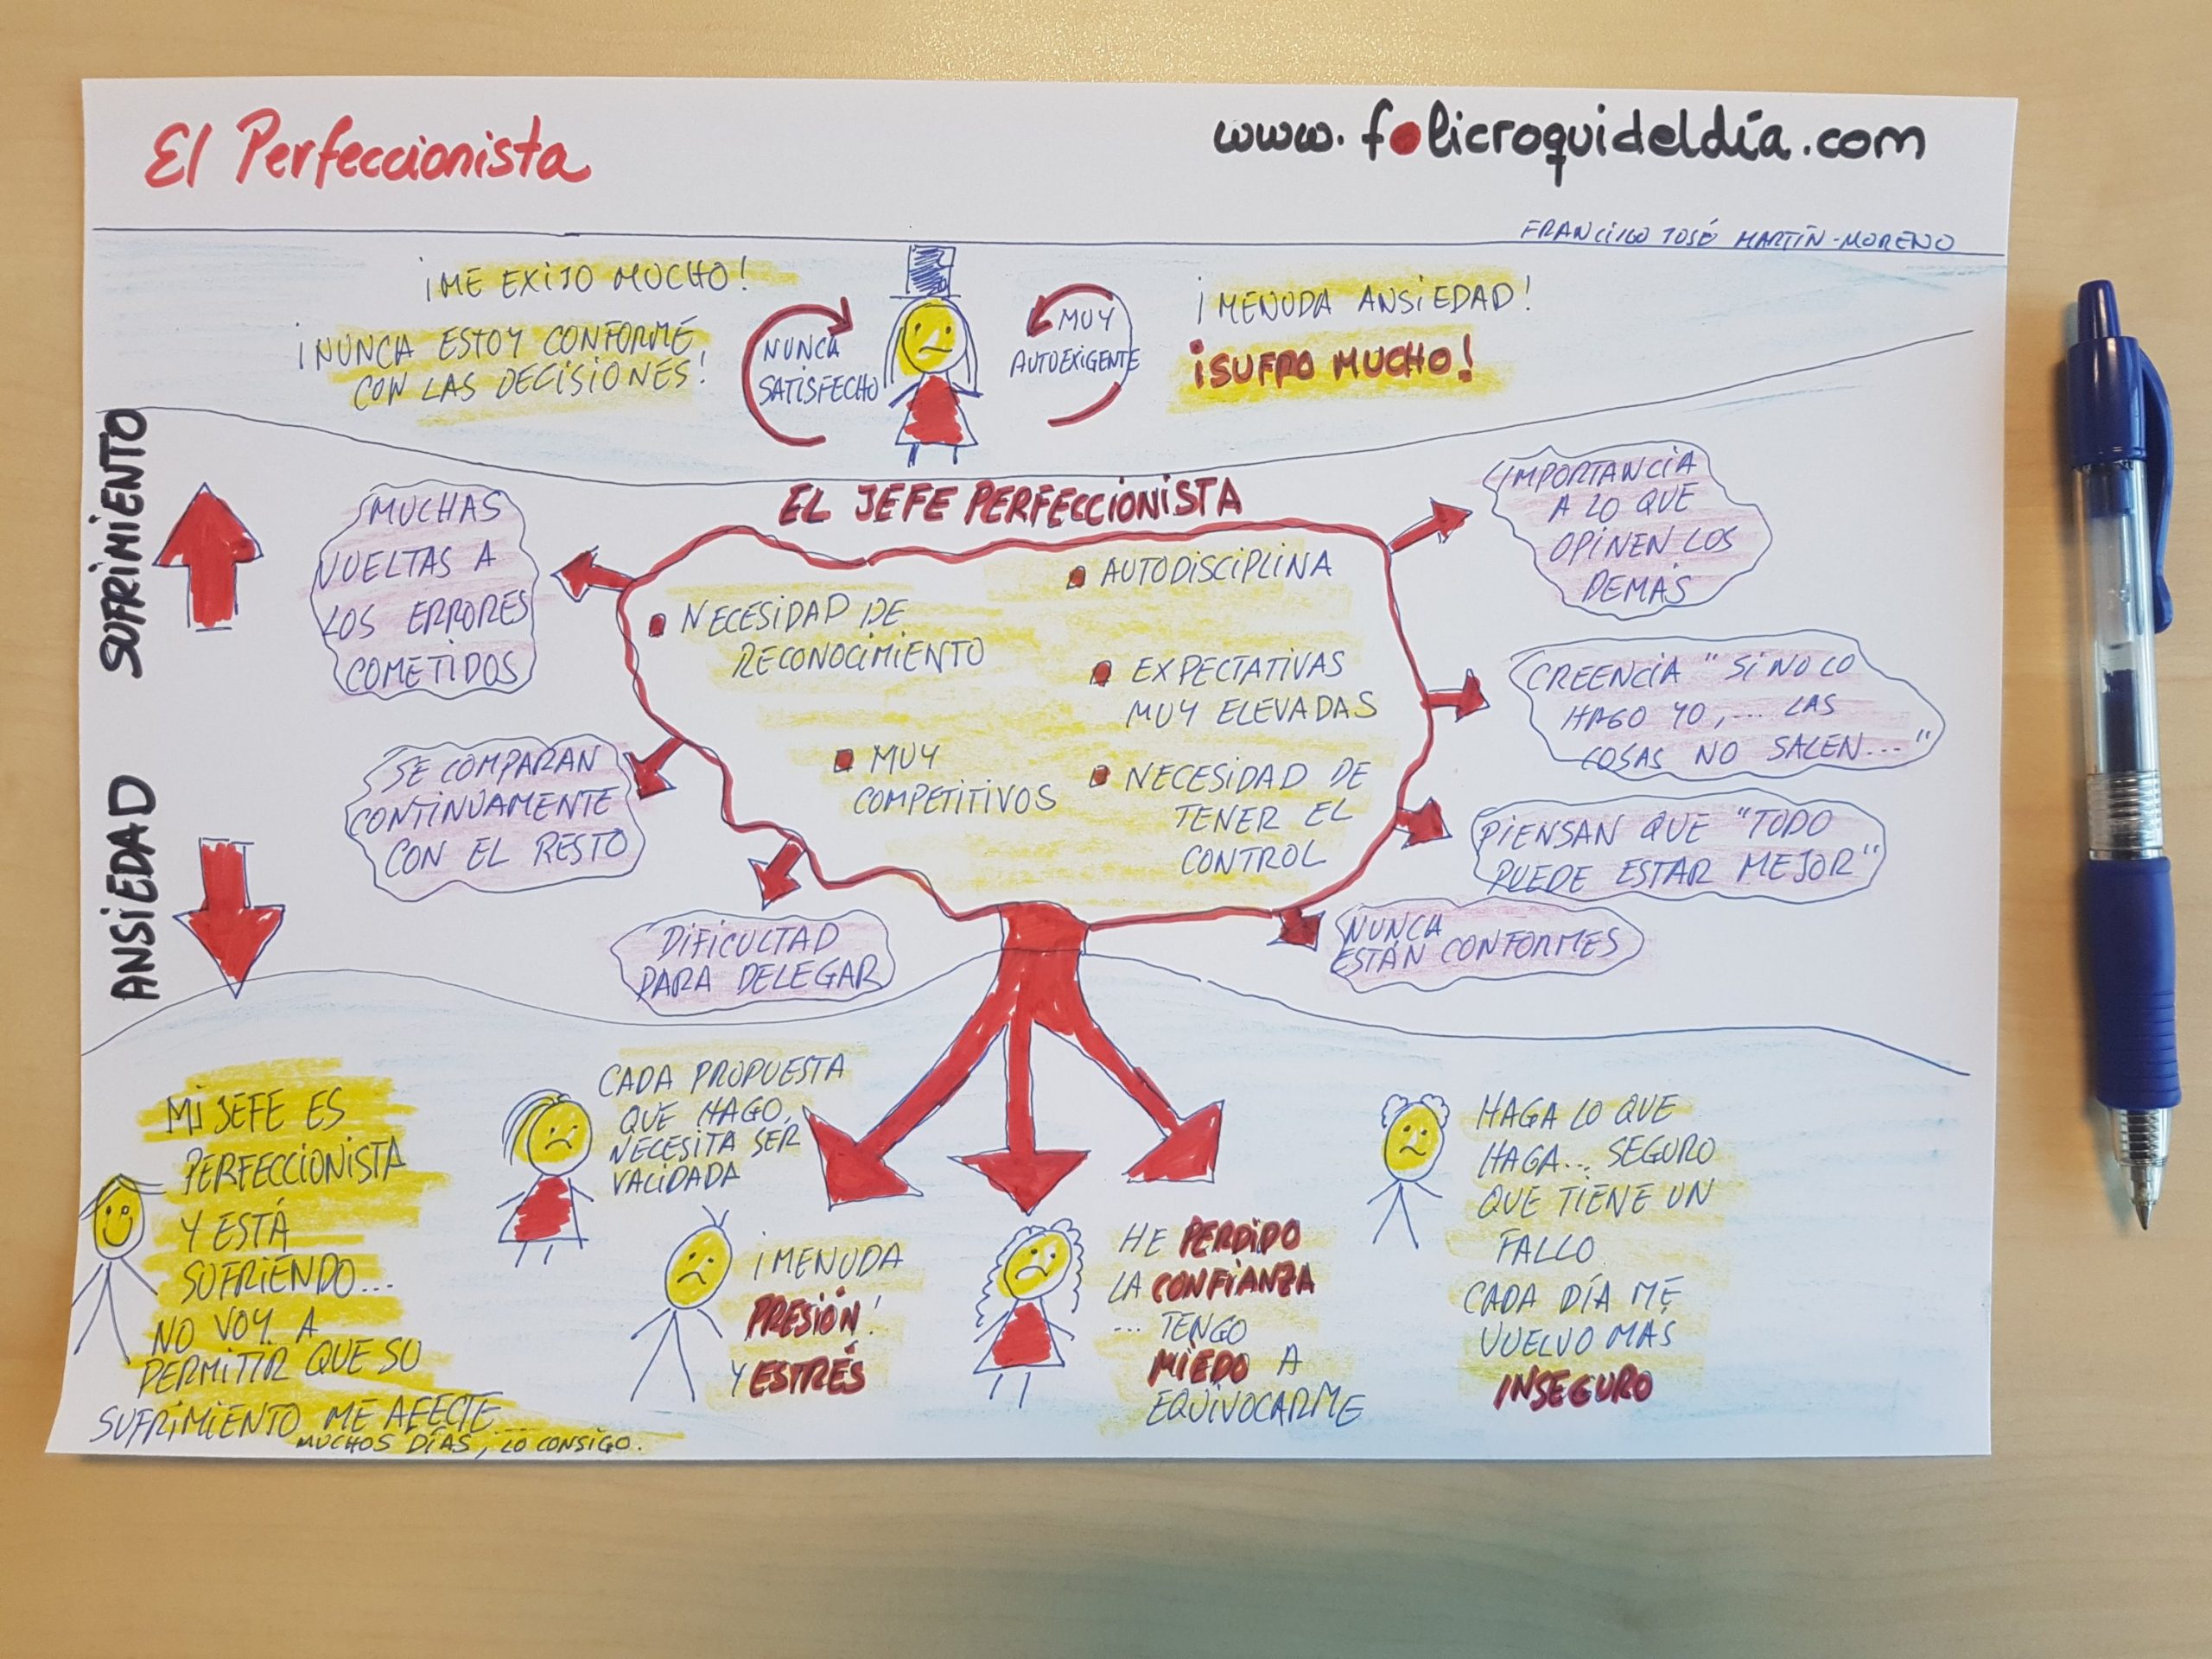 El Perfeccionista
www.folicroquideldía.com
FRANCISCO JOSÉ MARTÍN-MORENO
¡ME EXIJO MUCHO!
¡NUNCA ESTOY CONFORME
CON LAS DECISIONES!
NUNCA
SATISFECHO
MUY
AUTOEXIGENTE
¡MENUDA ANSIEDAD!
¡SUFRO MUCHO!
SUFRIMIENTO
ANSIEDAD
EL JEFE PERFECCIONISTA
NECESIDAD DE
RECONOCIMIENTO
AUTODISCIPLINA
EXPECTATIVAS
MUY ELEVADAS
MUY
COMPETITIVOS
NECESIDAD DE
TENER EL
CONTROL
MUCHAS
VUELTAS A
LOS ERRORES
COMETIDOS
SE COMPARAN
CONTINUAMENTE
CON EL RESTO
DIFICULTAD
PARA DELEGAR
IMPORTANCIA
A LO QUE
OPINEN LOS
DEMÁS
CREENCIA "SI NO LO
HAGO YO,... LAS
COSAS NO SALEN..."
PIENSAN QUE "TODO
PUEDE ESTAR MEJOR"
NUNCA
ESTÁN CONFORMES
MI JEFE ES
PERFECCIONISTA
Y ESTÁ
SUFRIENDO...
NO VOY A
PERMITIR QUE SU
SUFRIMIENTO ME AFECTE...
MUCHOS DÍAS, LO CONSIGO.
CADA PROPUESTA
QUE HAGO,
NECESITA SER
VALIDADA
¡MENUDA
PRESIÓN!
Y ESTRÉS
HE PERDIDO
LA CONFIANZA
... TENGO
MIEDO A
EQUIVOCARME
HAGA LO QUE
HAGA... SEGURO
QUE TIENE UN
FALLO.
CADA DÍA ME
VUELVO MÁS
INSEGURO